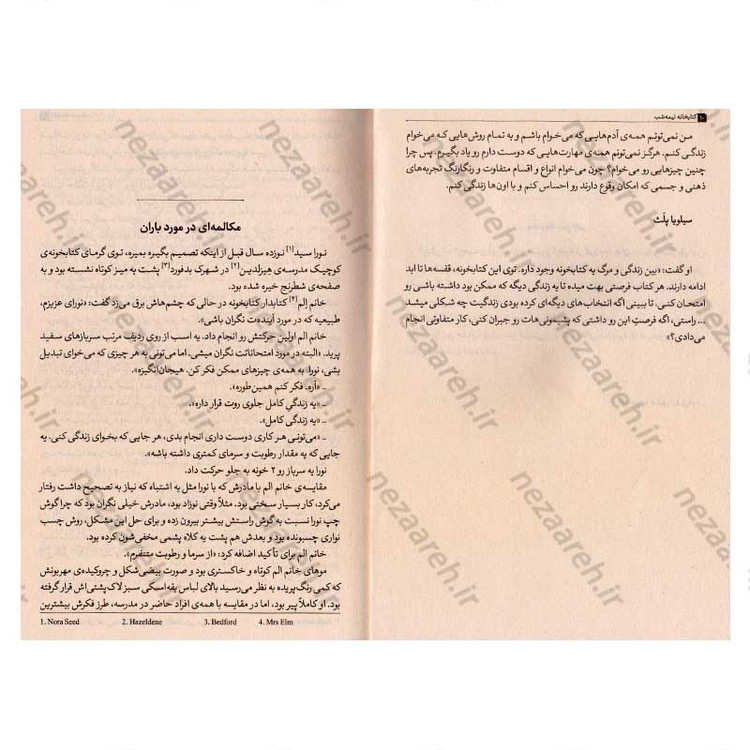 ۱۰ کتابخانه نیمه‌شب
من نمی‌تونم همه‌ی آدم‌هایی که می‌خوام باشم و به تمام روش‌هایی که می‌خوام
زندگی کنم. هرگز نمی‌تونم همه‌ی مهارت‌هایی که دوست دارم رو یاد بگیرم. پس چرا
چنین چیزهایی رو می‌خوام؟ چون می‌خوام انواع و اقسام متفاوت و رنگارنگ تجربه‌های
ذهنی و جسمی که امکان وقوع دارند رو احساس کنم و با اون‌ها زندگی کنم.
سیلویا پلَث
او گفت: «بین زندگی و مرگ یه کتابخونه وجود داره. توی این کتابخونه، قفسه‌ها تا ابد
ادامه دارند. هر کتاب فرصتی بهت میده تا یه زندگی دیگه که ممکن بود داشته باشی رو
امتحان کنی. تا ببینی اگه انتخاب‌های دیگه‌ای کرده بودی زندگیت چه شکلی میشد
... راستی، اگه فرصتِ این رو داشتی که پشیمونی‌هات رو جبران کنی، کار متفاوتی انجام
می‌دادی؟»
مکالمه‌ای در مورد باران
نورا سید[۱] نوزده سال قبل از اینکه تصمیم بگیره بمیره، توی گرمای کتابخونه‌ی
کوچیک مدرسه‌ی هِیزلدین[۲] در شهرک بدفورد[۳] پشت یه میز کوتاه نشسته بود و به
صفحه‌ی شطرنج خیره شده بود.
خانم اِلم[۴] کتابدار کتابخونه در حالی که چشم‌هاش برق می‌زد گفت: «نورای عزیزم،
طبیعیه که در مورد آینده‌ت نگران باشی».
خانم الم اولین حرکتش رو انجام داد. یه اسب از روی ردیف مرتب سربازهای سفید
پرید. «البته در مورد امتحاناتت نگران میشی. اما می‌تونی به هر چیزی که می‌خوای تبدیل
بشی، نورا. به همه‌ی چیزهای ممکن فکر کن. هیجان‌انگیزه».
ـ «آره. فکر کنم همین‌طوره».
ـ «یه زندگیِ کامل جلوی روت قرار داره».
ـ «یه زندگی کامل».
ـ «می‌تونی هر کاری دوست داری انجام بدی، هر جایی که بخوای زندگی کنی. یه
جایی که یه مقدار رطوبت و سرمای کمتری داشته باشه».
نورا یه سرباز رو ۲ خونه به جلو حرکت داد.
مقایسه‌ی خانم الم با مادرش که با نورا مثل یه اشتباه که نیاز به تصحیح داشت رفتار
می‌کرد، کار بسیار سختی بود. مثلاً وقتی نوزاد بود، مادرش خیلی نگران بود که چرا گوش
چپ نورا نسبت به گوش راستش بیشتر بیرون زده و برای حل این مشکل، روش چسب
نواری چسبونده بود و بعدش هم پشت یه کلاه پشمی مخفی‌شون کرده بود.
خانم الم برای تأکید اضافه کرد: «از سرما و رطوبت متنفرم».
موهای خانم الم کوتاه و خاکستری بود و صورت بیضی‌شکل و چروکیده‌ی مهربونش
که کمی رنگ‌پریده به نظر می‌رسید بالای لباس یقه‌اسکی سبز لاک‌پشتی‌اش قرار گرفته
بود. او کاملاً پیر بود، اما در مقایسه با همه‌ی افراد حاضر در مدرسه، طرز فکرش بیشترین
1. Nora Seed 2. Hazeldene 3. Bedford 4. Mrs Elm
nezaareh.ir